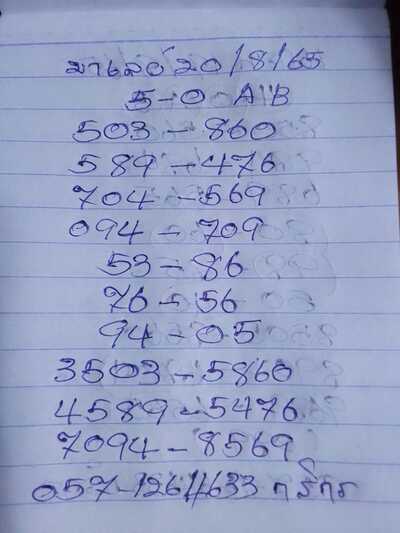 มาเลย์ 20/8/65
5-0 AB
503 - 860
589 - 476
704 - 569
094 - 709
53 - 86
76 - 56
94 - 05
3503 - 5860
4589 - 5476
7094 - 8569
057-126//633